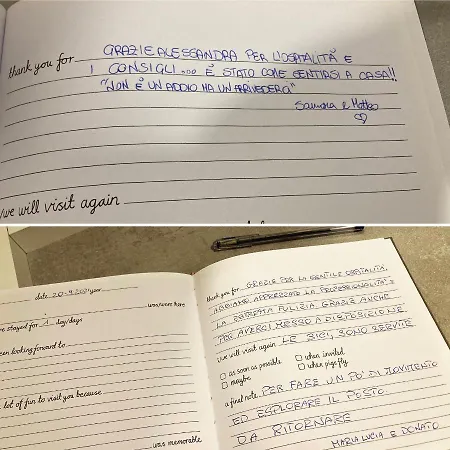 thank you for GRAZIE ALESSANDRA PER L'OSPITALITÀ E
I CONSIGLI... È STATO COME SENTIRSI A CASA!!
"NON È UN ADDIO MA UN ARRIVEDERCI"
Samara e Matteo
/we will visit again
date 20-9-2021 year
was/were here
e stayed for 1 day/days
een looking forward to
lot of fun to visit you because
was memorable
thank you for GRAZIE PER LA GENTILE OSPITALITÀ,
ABBIAMO APPREZZATO LA PROFESSIONALITÀ E
LA PULIZIA. GRAZIE ANCHE
PER AVERCI MESSO A DISPOSIZIONE
we will visit again LE BICI, SONO SERVITE
as soon as possible when invited
maybe when pigs fly
a final note PER FARE UN PO' DI MOVIMENTO
ED ESPLORARE IL POSTO
DA RITORNARE
MARIA LUCIA E DONATO